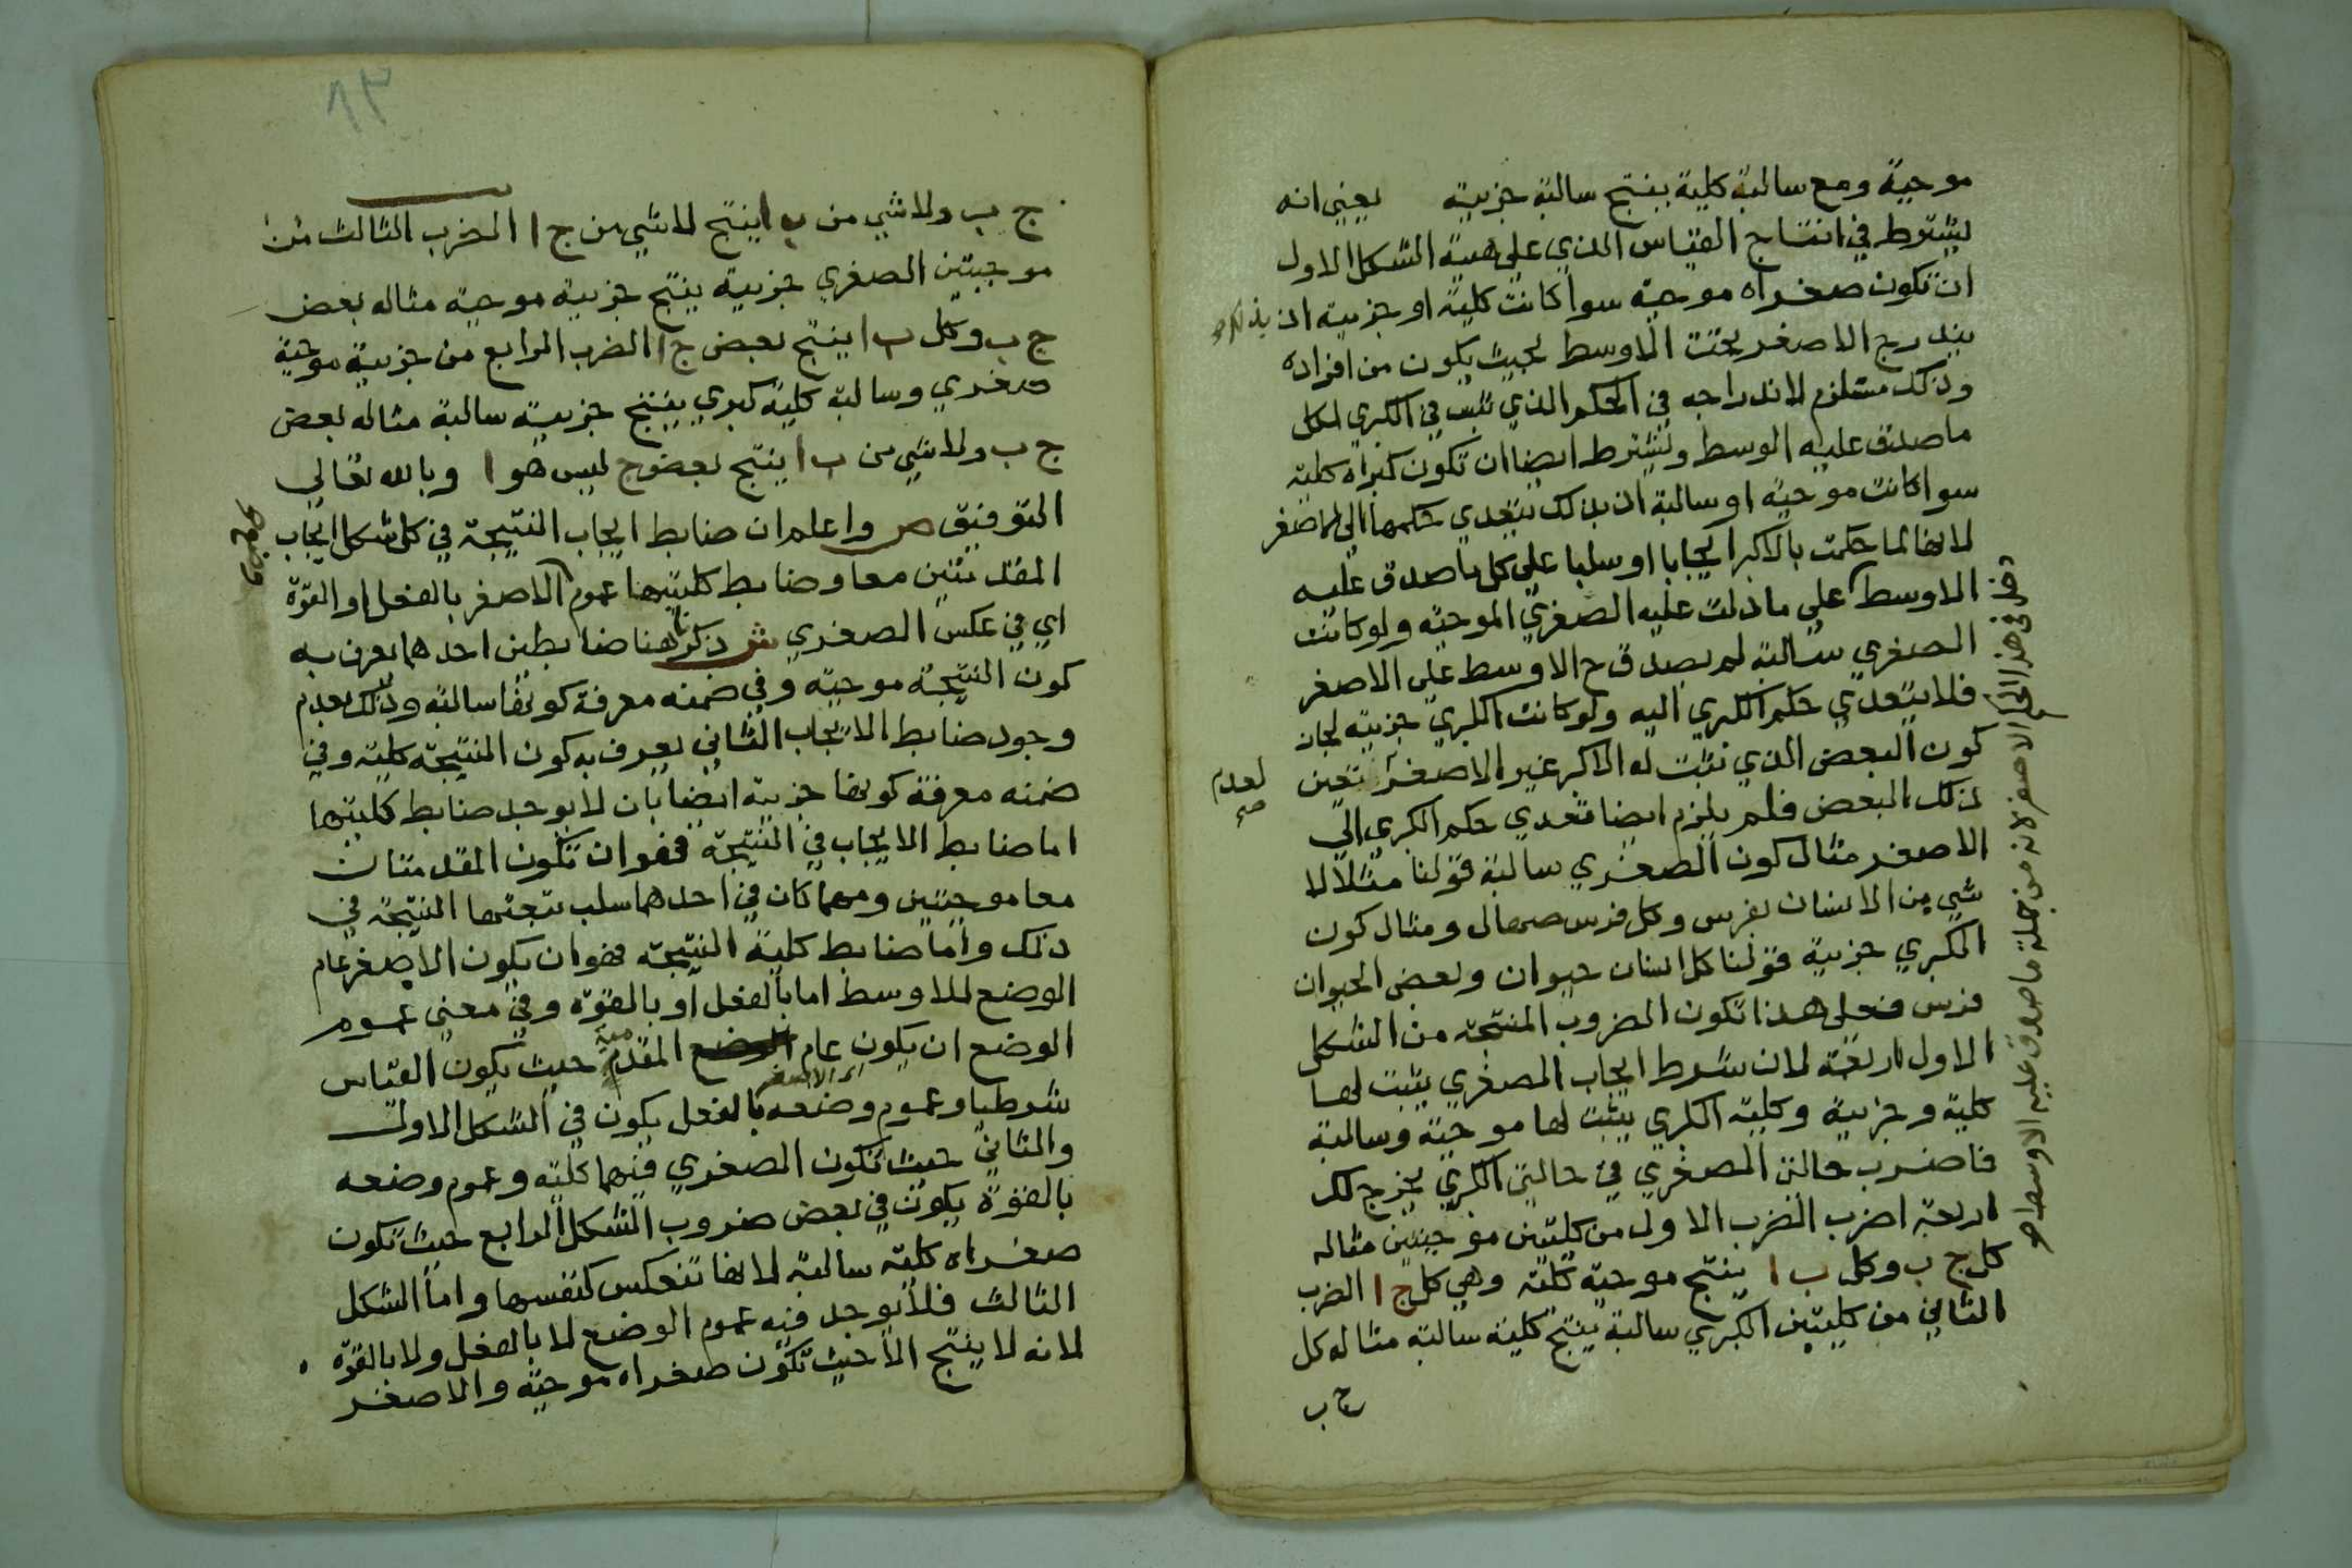 موجبة ومع سالبة كلية ينتج سالبة جزيية يعني انه
يشترط في انتاج القياس الذي علي هيية الشكل الاول
ان تكون صغراه موجبة سوا كانت كلية او جزيية اذ بذلك
يندرج الاصغر تحت الاوسط بحيث يكون من افراده
وذلك مستلزم لاندراجه في الحكم الذي ثبت في الكبري لكل
ما صدق عليه الوسط ويشترط ايضا ان تكون كبراه كلية
سوا كانت موجبة او سالبة اذ بذلك يتعدي حكمها الي الاصغر
لانها لما حكمت بالاكبر ايجابا او سلبا علي كل ما صدق عليه
الاوسط علي ما دلت عليه الصغري الموجبة ولو كانت
الصغري سالبة لم يصدق ح الاوسط علي الاصغر
فلا يتعدي حكم الكبري اليه ولو كانت الكبري جزيية لجاز
كون البعض الذي ثبت له الاكبر غير الاصغر تعين
لعدم
صح
ذلك البعض فلم يلزم ايضا تعدي حكم الكبري الي
الاصغر مثال كون الصغري سالبة قولنا مثلا لا
شي من الانسان بفرس وكل فرس صهال ومثال كون
الكبري جزيية قولنا كل انسان حيوان وبعض الحيوان
فرس فعلي هذا تكون الضروب المنتجة من الشكل
الاول اربعة لان شرط ايجاب الصغري يثبت لها
كلية وجزيية وكلية الكبري يثبت لها موجبة وسالبة
فاضرب حالتي الصغري في حالتي الكبري يخرج لك
اربعة اضرب الضرب الاول من كليتين موجبتين مثاله
كل ج ب وكل ب ا ينتج موجبة كلية وهي كل ج ا الضرب
الثاني من كليتين الكبري سالبة ينتج كلية سالبة مثاله كل
ج ب
دخل في هذا الحكم الاصغر لانه من جملة ما صدق عليه الاوسط
٩٣
ج ب ولا شي من ب ا ينتج لا شي من ج ا الضرب الثالث من
موجبتين الصغري جزيية ينتج جزيية موجبة مثاله بعض
ج ب وكل ب ا ينتج بعض ج ا الضرب الرابع من جزيية موجبة
صغري وسالبة كلية كبري ينتج جزيية سالبة مثاله بعض
ج ب ولا شي من ب ا ينتج بعض ج ليس هو ا وبالله تعالي
التوفيق ص واعلم ان ضابط ايجاب النتيجة في كل شكل ايجاب
المقدمتين معا وضابط كليتها عموم الاصغر بالفعل او القوة
اي في عكس الصغري ش ذكرنا هنا ضابطين احدهما يعرف به
كون النتيجة موجبة وفي ضمنه معرفة كونها سالبة وذلك بعدم
وجود ضابط الايجاب الثاني يعرف به كون النتيجة كلية وفي
ضمنه معرفة كونها جزيية ايضا بان لا يوجد ضابط كليتها
اما ضابط الايجاب في النتيجة فهو ان تكون المقدمتان
معا موجبتين ومهما كان في احدهما سلب تبعتها النتيجة في
ذلك واما ضابط كلية النتيجة فهو ان يكون الاصغر عام
الوضع للاوسط اما بالفعل او بالقوة وفي معني عموم
الوضع ان يكون عام الوضع المقدم حيث يكون القياس
اي الاصغر
شرطيا وعموم وضعه بالفعل يكون في الشكل الاول
والثاني حيث تكون الصغري فيهما كلية وعموم وضعه
بالقوة يكون في بعض ضروب الشكل الرابع حيث تكون
صغراه كلية سالبة لانها تنعكس كنفسها واما الشكل
الثالث فلا يوجد فيه عموم الوضع لا بالفعل ولا بالقوة
لانه لا ينتج الا حيث تكون صغراه موجبة والاصغر